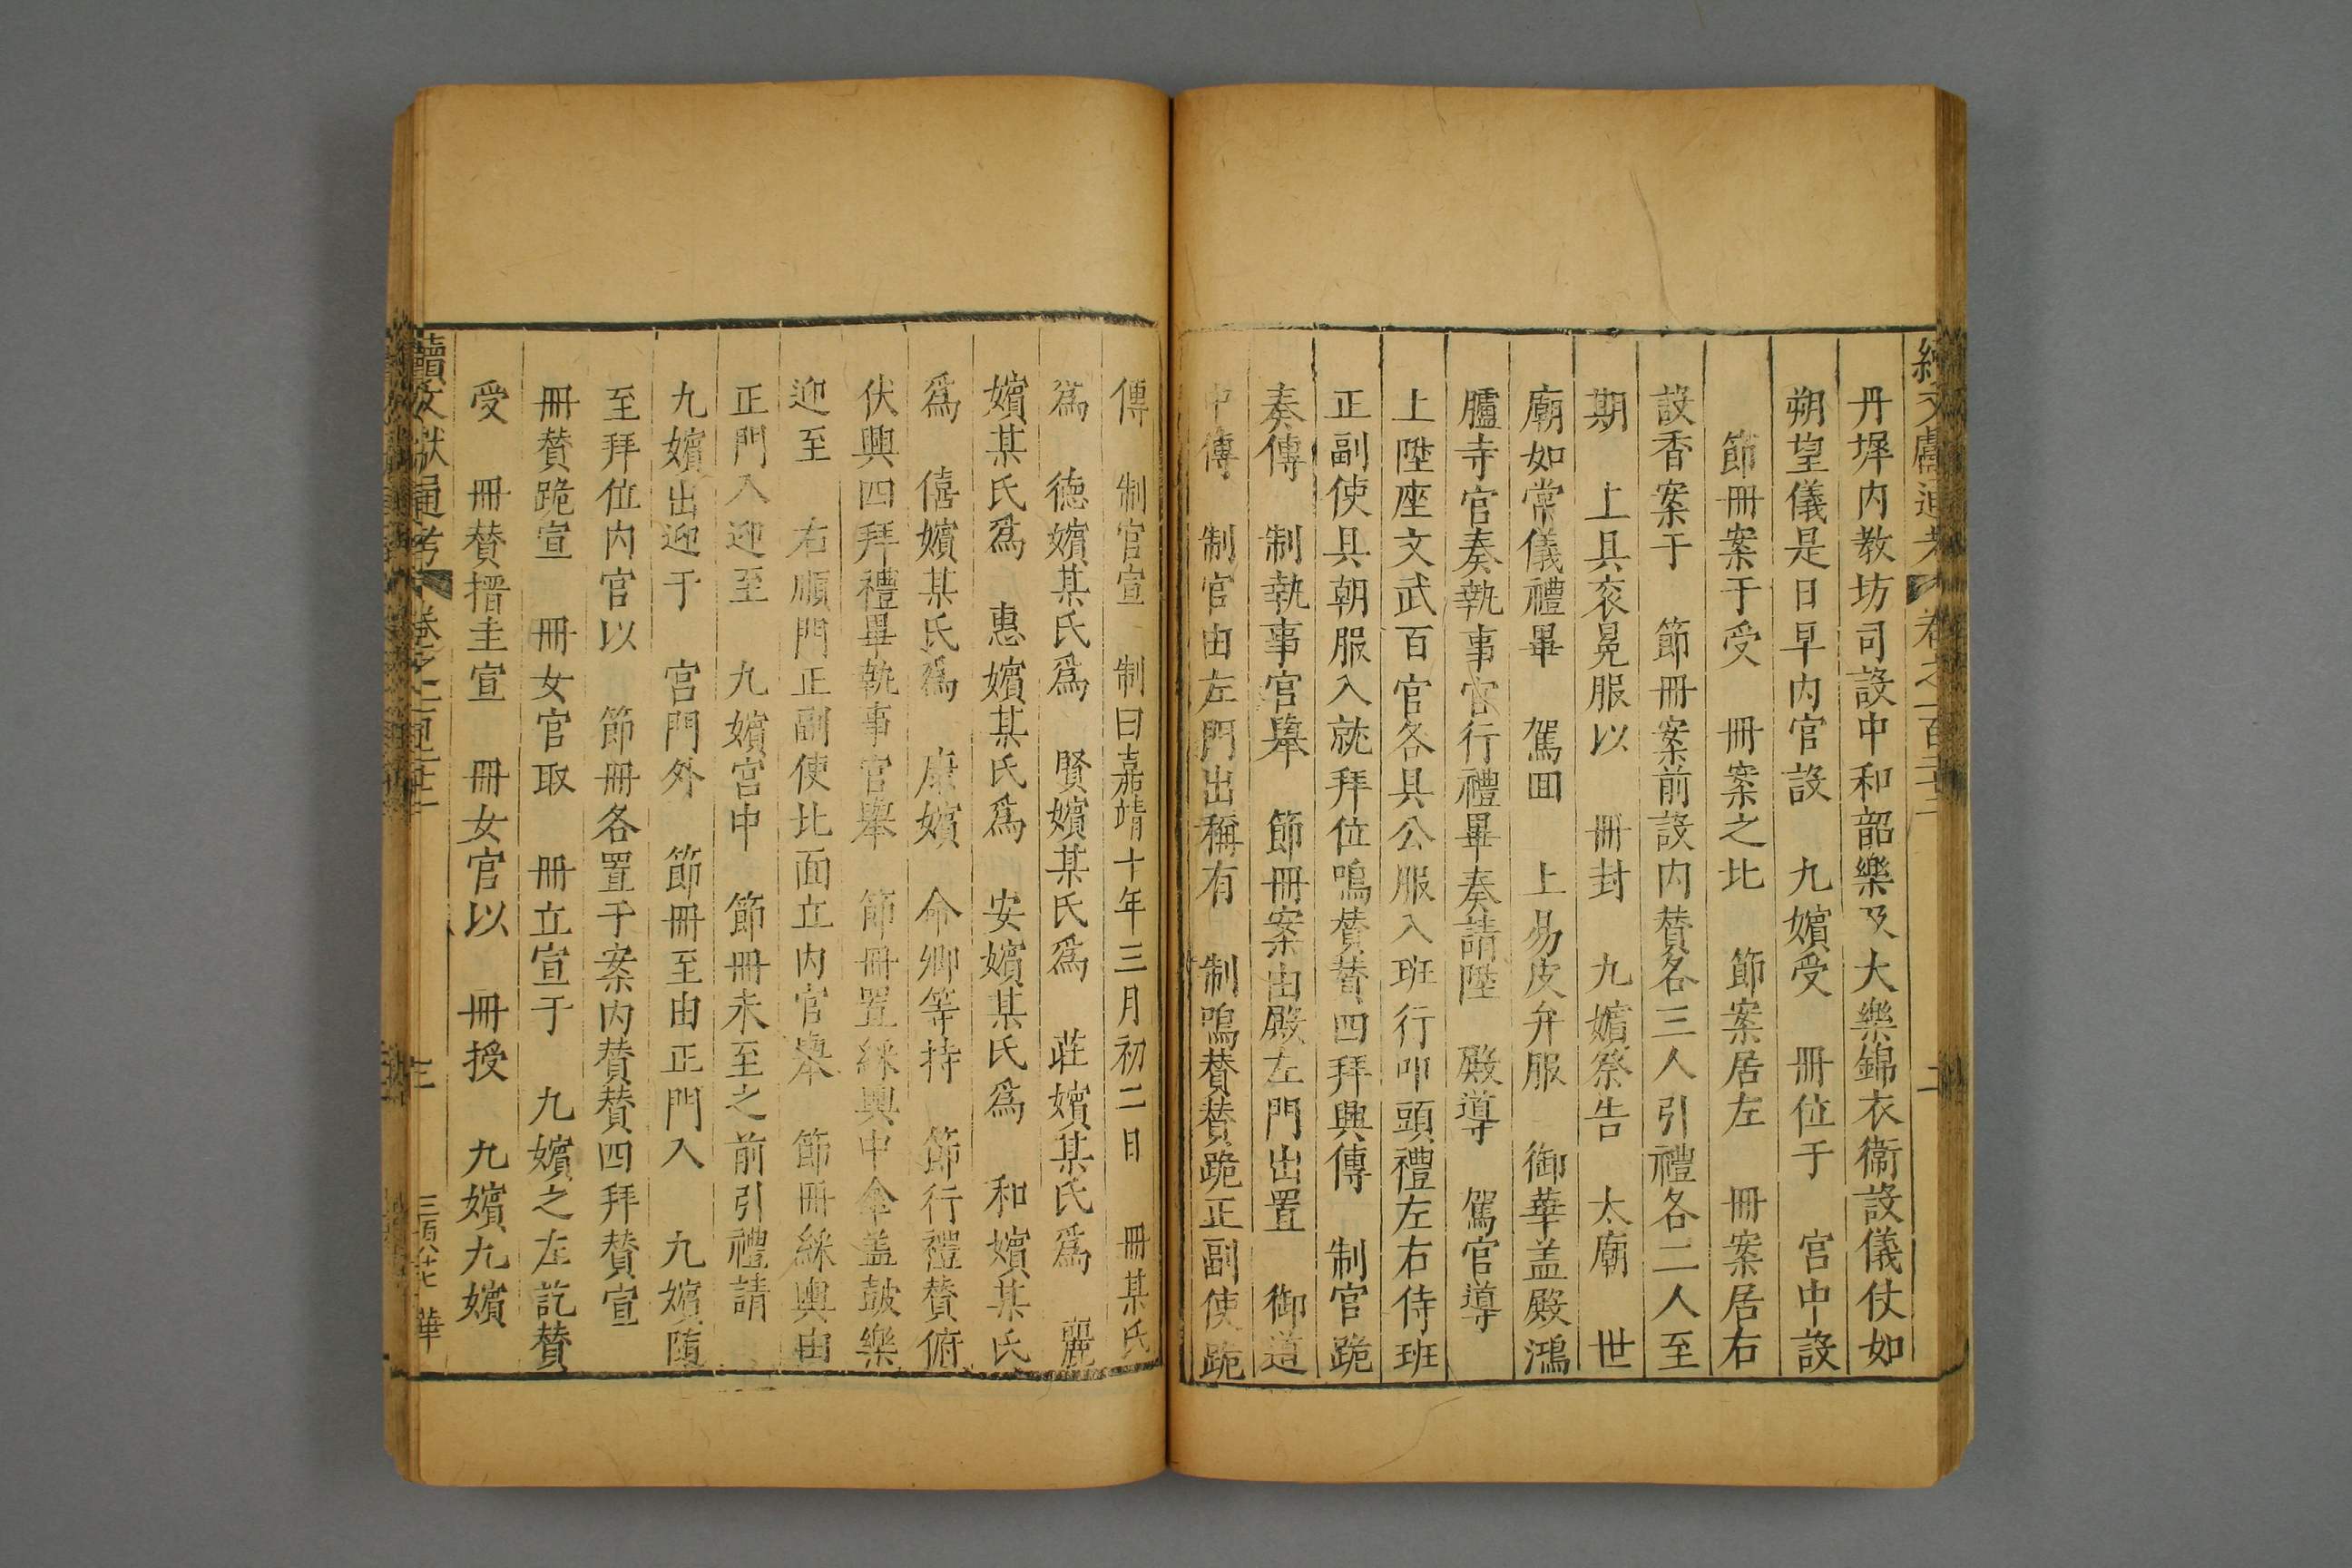 續文獻通考 卷之一百二十二 二
丹墀内教坊司設中和韶樂及大樂錦衣衛設儀仗如
朔望儀是日早内官設 九嬪受 冊位于 宫中設
節冊案于受 冊案之北 節案居左 冊案居右
設香案于 節冊案前設内贊各三人引禮各二人至
期 上具衮冕服以 冊封 九嬪祭告 太廟 世
廟如常儀禮畢 駕囬 上易皮弁服 御華盖殿鴻
臚寺官奏執事官行禮畢奏請陞 殿導 駕官導
上陞座文武百官各具公服入班行叩頭禮左右侍班
正副使具朝服入就拜位鳴贊贊四拜興傳 制官跪
奏傳 制執事官舉 節冊案由殿左門出置 御道
中傳 制官由左門出稱有 制鳴贊贊跪正副使跪
傳 制官宣 制曰嘉靖十年三月初二日 冊某氏
爲 德嬪某氏爲 賢嬪某氏爲 莊嬪某氏爲 麗
嬪某氏爲 惠嬪某氏爲 安嬪某氏爲 和嬪某氏
爲 僖嬪某氏爲 康嬪 命卿等持 節行禮贊俯
伏興四拜禮畢執事官舉 節冊置綵輿中傘盖鼓樂
迎至 右順門正副使北面立内官舉 節冊綵輿由
正門入迎至 九嬪宫中 節冊未至之前引禮請
九嬪出迎于 宫門外 節冊至由正門入 九嬪隨
至拜位内官以 節冊各置于案内贊贊四拜贊宣
冊贊跪宣 冊女官取 冊立宣于 九嬪之左訖贊
受 冊贊搢圭宣 冊女官以 冊授 九嬪九嬪
續文獻通考 卷之一百二十二 三